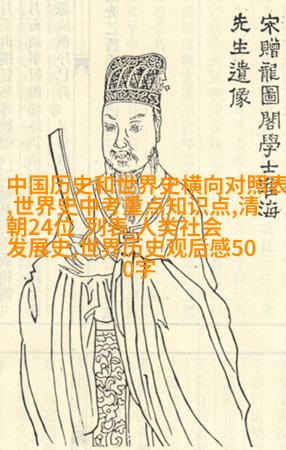 宋贈龍圖閣學士 海
先生遺像
中国历史和世界史横向对照表
,世界史中考重点知识点,清
朝24位 列表,人类社会
发展史,世界历史观后感50
0字